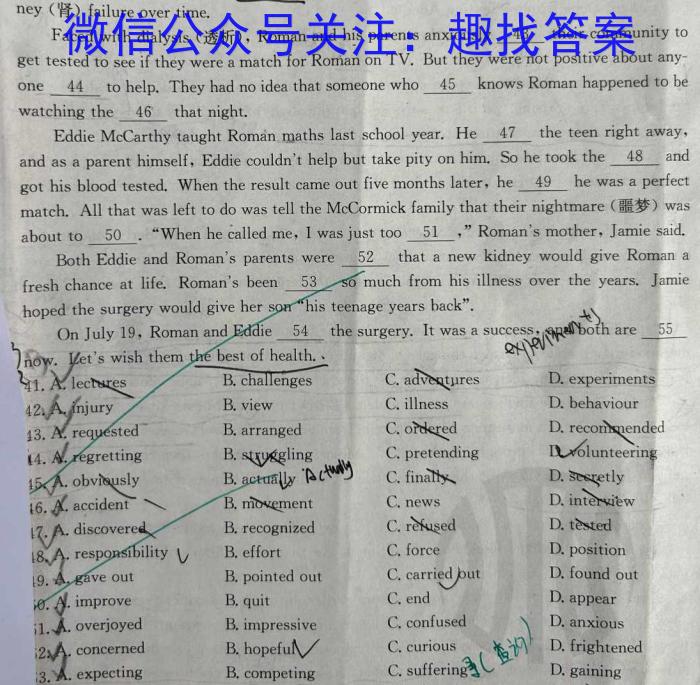 ney (肾) failure over time.
微信公众号关注：趣找答案
Faced with dialysis (透析), Roman and his parents anxiously 43 their community to
get tested to see if they were a match for Roman on TV. But they were not positive about any-
one 44 to help. They had no idea that someone who 45 knows Roman happened to be
watching the 46 that night.
Eddie McCarthy taught Roman maths last school year. He 47 the teen right away,
and as a parent himself, Eddie couldn't help but take pity on him. So he took the 48 and
got his blood tested. When the result came out five months later, he 49 he was a perfect
match. All that was left to do was tell the McCormick family that their nightmare (噩梦) was
about to 50 . "When he called me, I was just too 51 ," Roman's mother, Jamie said.
Both Eddie and Roman's parents were 52 that a new kidney would give Roman a
fresh chance at life. Roman's been 53 so much from his illness over the years. Jamie
hoped the surgery would give her son "his teenage years back".
On July 19, Roman and Eddie 54 the surgery. It was a success, and both are 55
experiments
now. Let's wish them the best of health.
41. A. lectures B. challenges C. adventures D. experiments
42. A. injury B. view C. illness D. behaviour
43. A. requested B. arranged C. ordered D. recommended
44. A. regretting B. struggling C. pretending D. volunteering
45. A. obviously B. actually Actually C. finally D. secretly
46. A. accident B. movement C. news D. interview
47. A. discovered B. recognized C. refused D. tested
48. A. responsibility B. effort C. force D. position
49. A. gave out B. pointed out C. carried out D. found out
50. A. improve B. quit C. end D. appear
51. A. overjoyed B. impressive C. confused D. anxious
52. A. concerned B. hopeful C. curious D. frightened
53. A. expecting B. competing C. suffering D. gaining